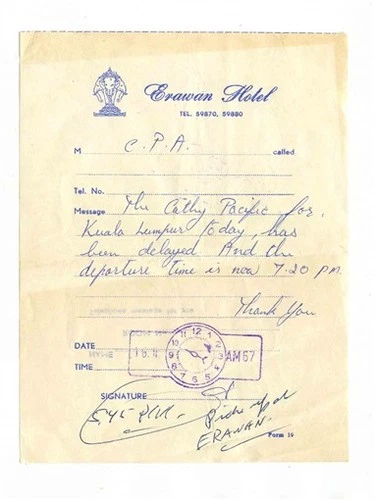 Erawan Hotel
TEL. 59870, 59880
M C.P.A. called
Tel. No.
Message The Cathy Pacific for
Kuala Lumpur today, has
been delayed. And the
departure time is now 7.20 PM.
Thank You
DATE
TIME
12 1 2 3 4 5 6 7 8 9 10 11
AM 67
SIGNATURE
545 PM.
ERAWAN.
Form 16